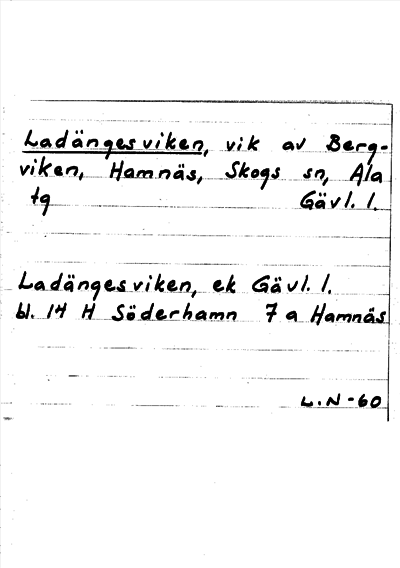 Ladängesviken, vik av Berg-
viken, Hamnäs, Skogs sn, Ala
tg Gävl. l.
Ladängesviken, ek Gävl. l.
bl. 14 H Söderhamn 7 a Hamnäs
L.N-60